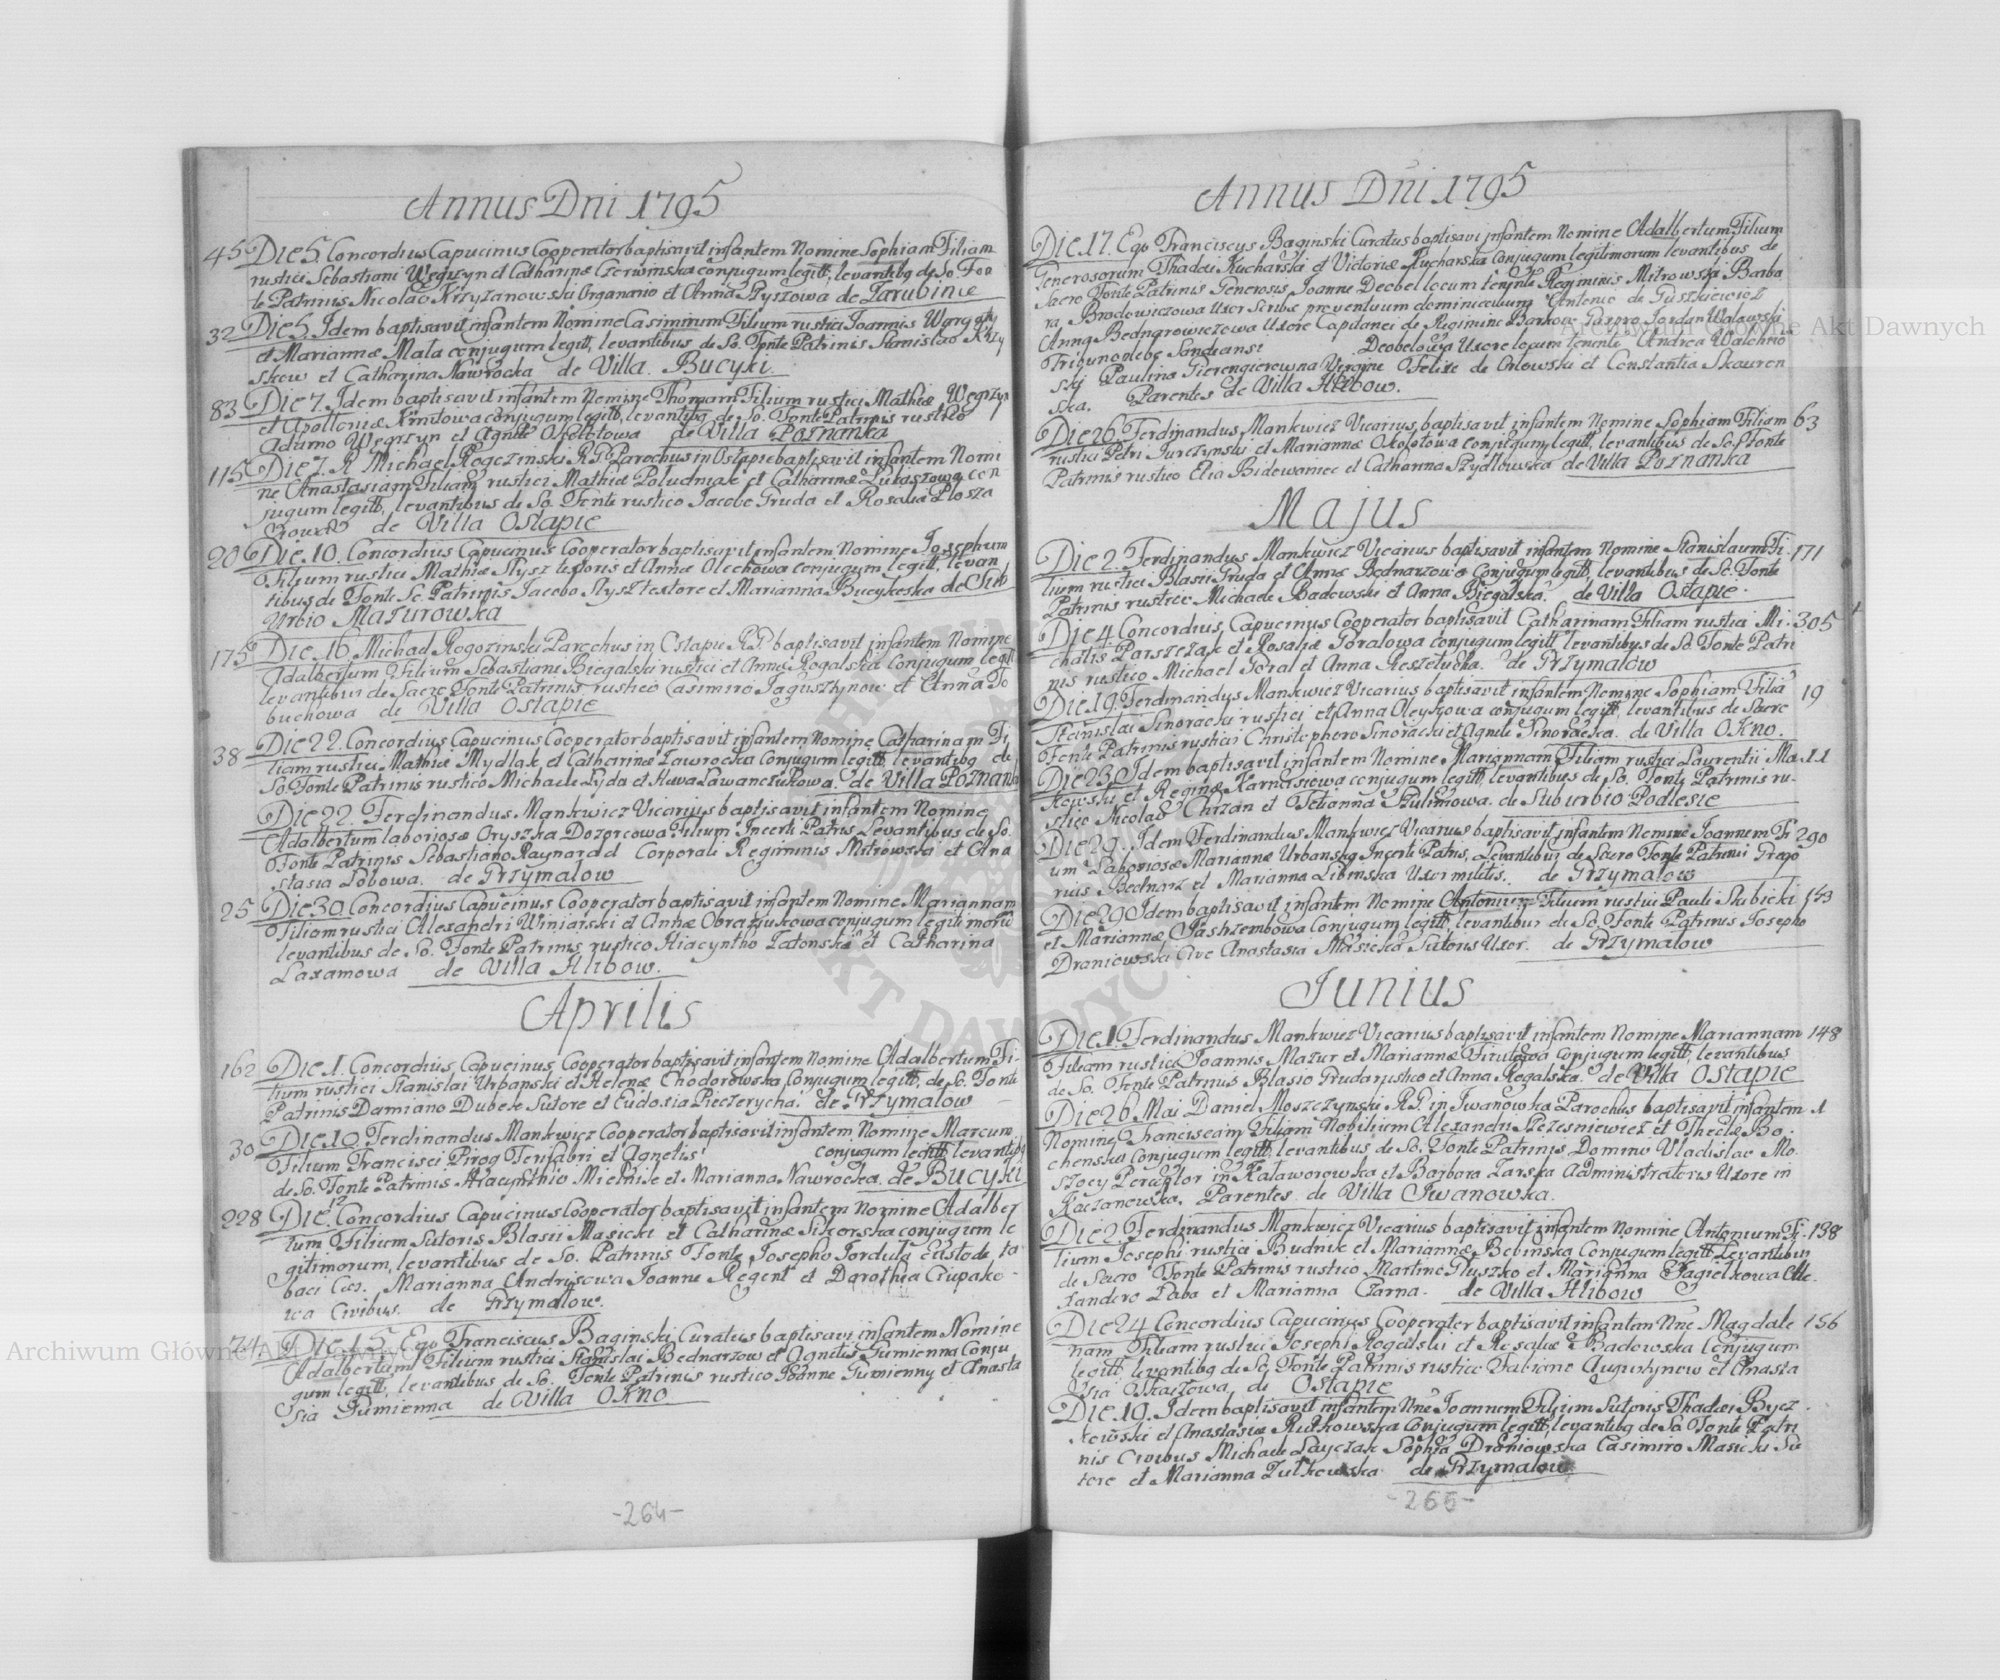 Annus Dni 1795
45 Die 5. Concordius Capucinus Cooperator baptisavit infantem Nomine Sophiam Filiam
rustici Sebastiani Węgrzyn et Catharinæ Czerwinska conjugum legitt, levantibg de So. Fon
te Patrinis Nicolao Krzyzanowski Organario et Anna Szyszowa de Zarubince
32 Die 5. Idem baptisavit infantem Nomine Casimirum Filium rustici Joannis
et Mariannæ Mala conjugum legitt, levantibus de So. Fonte Patrinis Stanislao Krzy
skow et Catharina Nawrocka de Villa Bucyki.
83 Die 7. Idem baptisavit infantem Nomine Thomam Filium rustici Mathiæ Węgrzyn
et Apolloniæ conjugum legitt, levantibg de So. Fonte Patrinis rustico
Adamo Węgrzyn et Agnete de Villa Poznanka
115 Die 7. R Michael Rogozinski R.P. Parochus in Ostapie baptisavit infantem Nomi
ne Anastasiam Filiam rustici Mathiæ Poludniak et Catharinæ Lukaszowa con
jugum legitt, levantibus de So. Fonte rustico Jacobo Gruda et Rosalia Plosza
de Villa Ostapie
20 Die 10. Concordius Capucinus Cooperator baptisavit infantem Nomine Josephum
Filium rustici Mathiæ Szysz textoris et Annæ Olechowa conjugum legitt, levan
tibus de Fonte So. Patrinis Jacobo Szysz textore et Marianna Bucykoska de Sub
Urbio Mazurowka
175 Die 16. Michael Rogozinski Parochus in Ostapie R.P. baptisavit infantem Nomine
Adalbertum Filium Sebastiani Biegalski rustici et Annæ Rogalska Conjugum legitt
levantibus de Sacro Fonte Patrinis rustico Casimiro Jaguszhynow et Anna To
buchowa de Villa Ostapie
38 Die 22. Concordius Capucinus Cooperator baptisavit infantem Nomine Catharinam Fi
liam rustici Mathiæ Mydlak et Catharinæ Lawrocka Conjugum legitt, levantibg de
So. Fonte Patrinis rustico Michaele Lyda et Huva Lawanczukowa. de Villa Poznanka
Die 22. Ferdinandus Mankwicz Vicarius baptisavit infantem Nomine
Adalbertum laboriosæ Oryszka Dozorcowa Filium Incerti Patris Levantibus de So.
Fonte Patrinis Sebastiano Raynardd Corporali Regiminis Mitrowski et Ana
stasia Lobowa. de Grzymalow
25 Die 30. Concordius Capucinus Cooperator baptisavit infantem Nomine Mariannam
Filiam rustici Alexandri Winiarski et Annæ conjugum legitimorū
levantibus de So. Fonte Patrinis rustico Hiacyntho Zatonski et Catharina
Laxamowa de Villa Hlibow.
Aprilis
162 Die 1. Concordius Capucinus Cooperator baptisavit infantem Nomine Adalbertum Fi-
lium rustici Stanislai Urbanski et Helenæ Chodorowska Conjugum legitt, de So. Fonte
Patrinis Damiano Dubek Sutore et Eudosia Pieczerycha. de Grzymalow
30 Die 10. Ferdinandus Mankwicz Cooperator baptisavit infantem Nomine Marcum
Filium Francisci Pirog Fenfabri et Agnetis Conjugum legitt levantibg
de So. Fonte Patrinis Hiacynthio Mielnik et Marianna Nawrocka. de Bucyki
228 Die 12 Concordius Capucinus Cooperator baptisavit infantem Nomine Adalber
tum Filium Sutoris Blasii Masicki et Catharinæ Sikorska conjugum le
gitimorum, levantibus de So. Patrinis Fonte Josepho Fordula Custode ta
baci Cæs. Marianna Andryszowa Joanne Regent et Dorothea Czupako-
wa Civibus. de Grzymalow.
74 Die 15. Ego Franciscus Baginski Curatus baptisavi infantem Nomine
Adalbertum Filium rustici Stanislai Bednarzow et Agnetis Gumienna Conju
gum legitt, levantibus de So. Fonte Patrinis rustico Joanne Gumienny et Anasta
sia Gumienna de Villa Okno.
-264-
Annus Dni 1795
Die 17. Ego Franciscus Baginski Curatus baptisavi infantem Nomine Adalbertum Filium
Generosorum Thadæi Kucharski et Victoriæ Kucharska Conjugum legitimorum levantibus de
Sacro Fonte Patrinis Generosis Joanne Deobel locum tenente Regiminis Mitrowski Barba
ra Brodowiczowa Uxor Scribæ proventuum dominicalium Antonio de Puszkiewicz
Anna Bednarowiczowa Uxore Capitanei de Regimine Barkow Jordan Walawski
Deobelowa Uxore locum tenente Andrea Walchno
ski Paulina Virgine Felixe de Orlowski et Constantia Skauron
ska. Parentes de Villa Hlibow.
Die 26. Ferdinandus Mankwicz Vicarius baptisavit infantem Nomine Sophiam Filiam 63
rustici Petri Jurczynski et Mariannæ Okolotowa Conjugum legitt, levantibus de So. Fonte
Patrinis rustico Elia Bidowaniec et Catharina Szydlowska de Villa Poznanka
Majus
Die 2. Ferdinandus Mankwicz Vicarius baptisavit infantem Nomine Stanislaum Fi- 171
lium rustici Blasii Gruda et Annæ Bednarzowa Conjugum legitt, levantibus de So. Fonte
Patrinis rustico Michaele Badowski et Anna Biegalska. de Villa Ostapie.
Die 4 Concordius Capucinus Cooperator baptisavit Catharinam Filiam rustici Mi- 305
chalis Parszczak et Rosaliæ Goralowa conjugum legitt, levantibus de So. Fonte Patri
nis rustico Michael Goral et Anna Reszetucha. de Grzymalow
Die 19. Ferdinandus Mankwicz Vicarius baptisavit infantem Nomine Sophiam Filiā 19
Stanislai Sinoracki rustici et Anna Oleyszowa conjugum legitt, levantibus de Sacro
Fonte Patrinis rustici Christophoro Sinoracki et Agnete Sinoracka. de Villa Okno.
Die 23. Idem baptisavit infantem Nomine Mariannam Filiam rustici Laurentii Ma 11
kowski et Reginæ conjugum legitt, levantibus de So. Fonte Patrinis ru-
stico Nicolao Chrzan et Tetianna Szulimowa. de Suburbio Podlesie
Die 29. Idem Ferdinandus Mankwicz Vicarius baptisavit infantem Nomine Joannem Fi 290
um Laboriosæ Mariannæ Urbanska Incerti Patris, Levantibus de Sacro Fonte Patrinis Grego
rius Bednarz et Marianna Libinska Uxor militis. de Grzymalow
Die 29 Idem baptisavit infantem Nomine Antonium Filium rustici Pauli Skubicki 153
et Mariannæ Jashrzembowa Conjugum legitt, levantibus de So. Fonte Patrinis Josepho
Draniowski Cive Anastasia Masicka Sutoris Uxor. de Grzymalow
Junius
Die 1. Ferdinandus Mankwicz Vicarius baptisavit infantem Nomine Mariannam 148
Filiam rustici Joannis Mazur et Mariannæ Conjugum legitt, levantibus
de So. Fonte Patrinis Blasio Gruda rustico et Anna Rogalska. de Villa Ostapie
Die 26 Mai Daniel Moszczynski R.P. in Iwanowka Parochus baptisavit infantem 1
Nomine Franciscam Filiam Nobilium Alexandri Szczesniewicz et Theclæ Bo-
chenska Conjugum legitt, levantibus de So. Fonte Patrinis Domino Vladislao Mo-
szocy Perceptor in Kalaworowka et Barbara Zarska Administratoris Uxore in
Kaczanowka. Parentes de Villa Iwanowka.
Die 2. Ferdinandus Mankwicz Vicarius baptisavit infantem Nomine Antonium Fi- 138
lium Josephi rustici Budnik et Mariannæ Bebinska Conjugum legitt, Levantibus
de Sacro Fonte Patrinis rustico Martino Gluszko et Marianna Jagielkowa Ale-
xandero Zaba et Marianna Czarna. de Villa Hlibow
Die 24 Concordius Capucinus Cooperator baptisavit infantem Nne Magdale 156
nam Filiam rustici Josephi Rogalski et Rosaliæ Badowska Conjugum
legitt, levantibg de So. Fonte Patrinis rustico Fabiano Augustynow et Anasta
sia de Ostapie
Die 19. Idem baptisavit infantem Nne Joannem Filium Sutoris Thadæi Bycz
kowski et Anastasiæ Rutkowska Conjugum legitt, levantibg de So. Fonte Patri
nis Civibus Michaele Layczak Sophia Draniowska Casimiro Masicki Su
tore et Marianna Zulkowska de Grzymalow
-266-
Archiwum Główne Akt Dawnych
Archiwum Główne Akt Dawnych